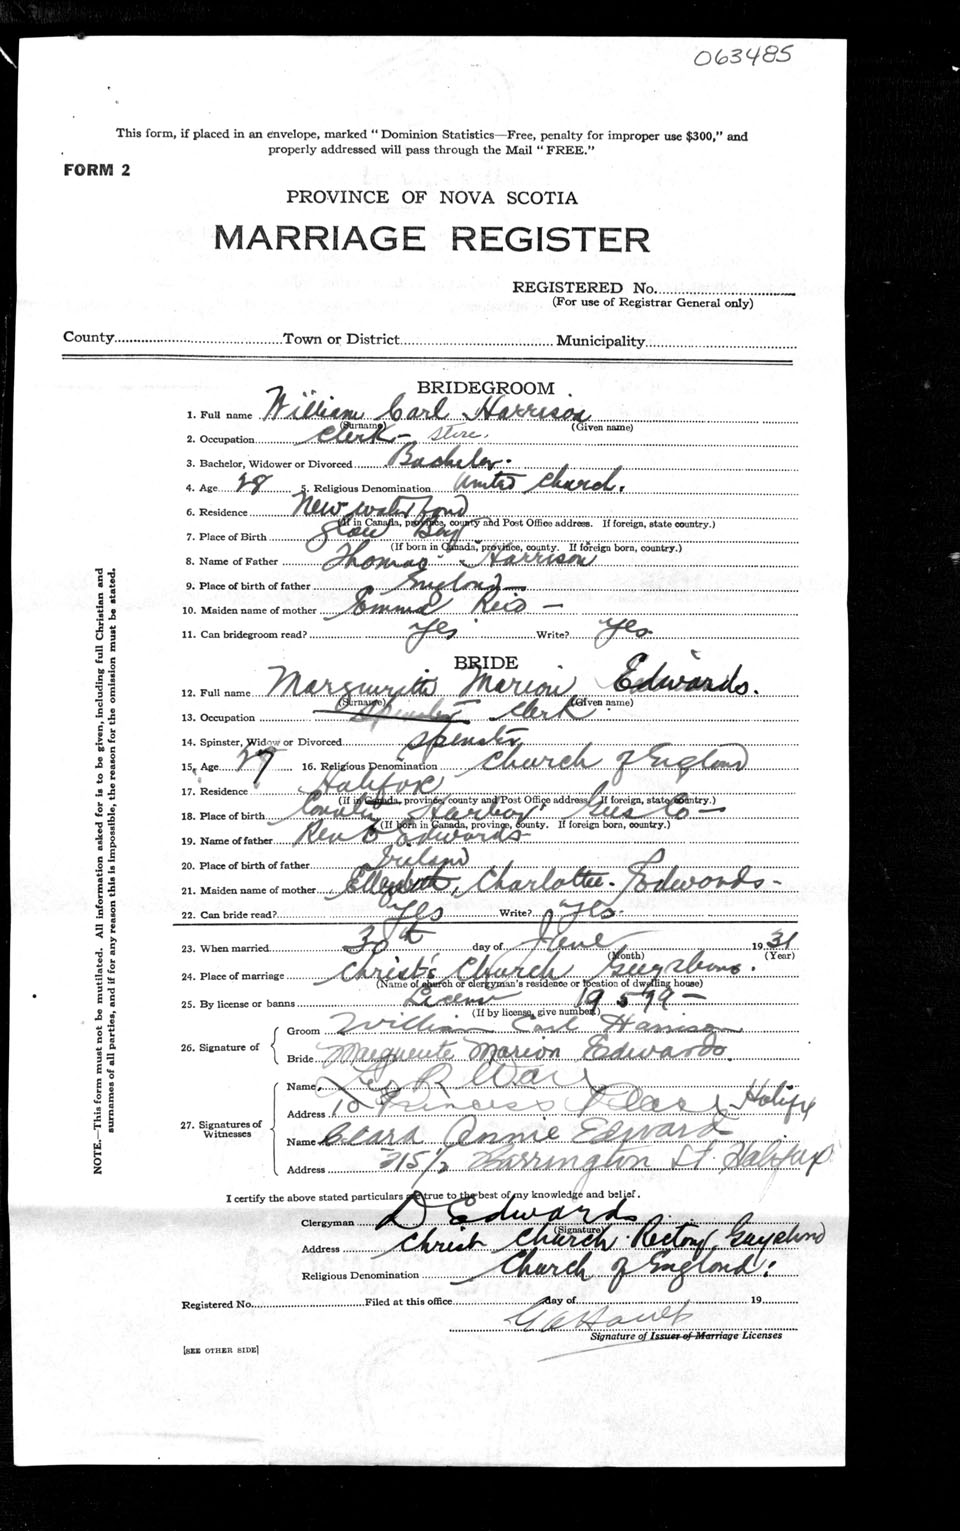 063485
This form, if placed in an envelope, marked "Dominion Statistics—Free, penalty for improper use $300," and
properly addressed will pass through the Mail "FREE."
FORM 2
PROVINCE OF NOVA SCOTIA
MARRIAGE REGISTER
REGISTERED No.
(For use of Registrar General only)
County Town or District Municipality
BRIDEGROOM
1. Full name William Carl Harrison
(Surname) (Given name)
2. Occupation Clerk - store.
3. Bachelor, Widower or Divorced Bachelor.
4. Age 28 5. Religious Denomination United Church.
6. Residence New Waterford
(If in Canada, province, county and Post Office address. If foreign, state country.)
7. Place of Birth Glace Bay
(If born in Canada, province, county. If foreign born, country.)
8. Name of Father Thomas Harrison
9. Place of birth of father England
10. Maiden name of mother Emma Reid -
11. Can bridegroom read? Yes Write? Yes.
BRIDE
12. Full name Marguerite Marion Edwards.
(Surname) (Given name)
13. Occupation Spinster Clerk
14. Spinster, Widow or Divorced Spinster
15. Age 27 16. Religious Denomination Church of England
17. Residence Halifax
(If in Canada, province, county and Post Office address. If foreign, state country.)
18. Place of birth Harbor Guys Co -
(If born in Canada, province, county. If foreign born, country.)
19. Name of father Rev D Edwards
20. Place of birth of father Ireland
21. Maiden name of mother Elizabeth, Charlotte. Edwards -
22. Can bride read? Yes Write? Yes.
23. When married 30th day of June 1931
(Month) (Year)
24. Place of marriage Christ's Church Guysboro.
(Name of church or clergyman's residence or location of dwelling house)
25. By license or banns License 19579 -
(If by license, give number)
26. Signature of
Groom William Carl Harrison
Bride Marguerite Marion Edwards.
27. Signatures of Witnesses
Name R War
Address 10 Princess Place Halifax
Name Clara Annie Edward
Address 315 1/2 Barrington St. Halifax
I certify the above stated particulars are true to the best of my knowledge and belief.
Clergyman D Edwards
(Signature)
Address Christ Church Rectory, Guysboro
Religious Denomination Church of England.
Registered No. Filed at this office day of 19
Signature of Issuer of Marriage Licenses
[SEE OTHER SIDE]
NOTE.—This form must not be mutilated. All information asked for is to be given, including full Christian and
surnames of all parties, and if for any reason this is impossible, the reason for the omission must be stated.